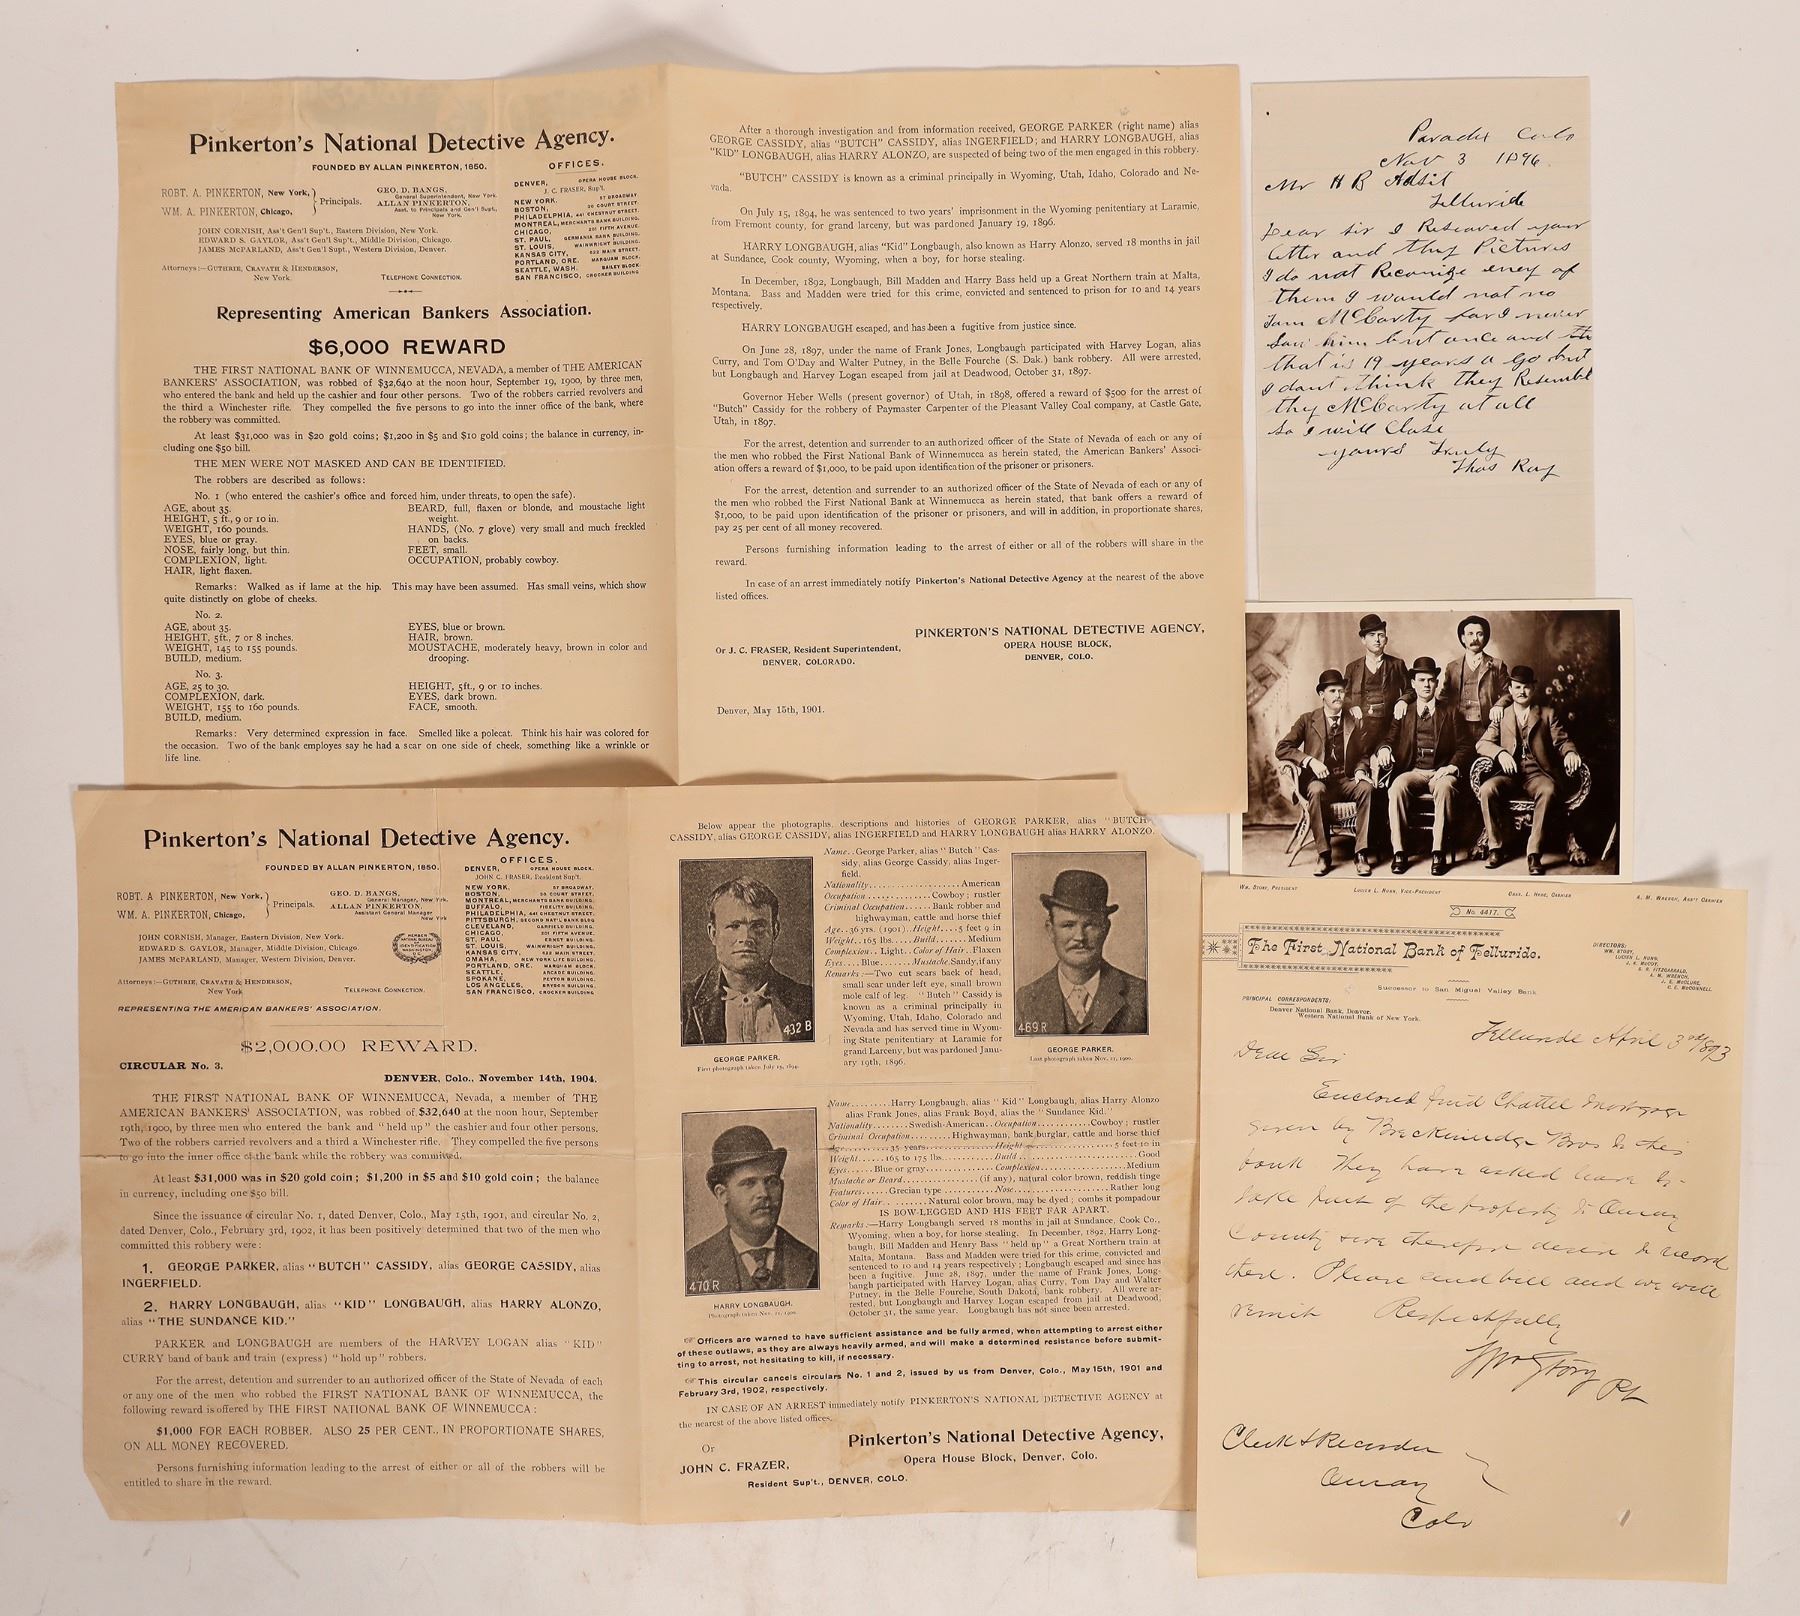 Pinkerton's National Detective Agency.
FOUNDED BY ALLAN PINKERTON, 1850.
ROBT. A. PINKERTON, New York,
WM. A. PINKERTON, Chicago,
Principals.
GEO. D. BANGS,
General Superintendent, New York.
ALLAN PINKERTON,
Asst. to Principals and Gen'l Supt.,
New York.
JOHN CORNISH, Ass't Gen'l Sup't., Eastern Division, New York.
EDWARD S. GAYLOR, Ass't Gen'l Sup't., Middle Division, Chicago.
JAMES McPARLAND, Ass't Gen'l Supt., Western Division, Denver.
Attorneys:—GUTHRIE, CRAVATH & HENDERSON,
New York.
TELEPHONE CONNECTION.
OFFICES.
DENVER, OPERA HOUSE BLOCK.
J. C. FRASER, Sup't.
NEW YORK. 57 BROADWAY
BOSTON, 30 COURT STREET.
PHILADELPHIA, 441 CHESTNUT STREET.
MONTREAL, MERCHANTS BANK BUILDING.
CHICAGO, 201 FIFTH AVENUE.
ST. PAUL, GERMANIA BANK BUILDING.
ST. LOUIS, WAINWRIGHT BUILDING.
KANSAS CITY, 622 MAIN STREET.
PORTLAND, ORE. MARQUAM BLOCK.
SEATTLE, WASH. BAILEY BLOCK.
SAN FRANCISCO, CROCKER BUILDING
Representing American Bankers Association.
$6,000 REWARD
THE FIRST NATIONAL BANK OF WINNEMUCCA, NEVADA, a member of THE AMERICAN
BANKERS' ASSOCIATION, was robbed of $32,640 at the noon hour, September 19, 1900, by three men,
who entered the bank and held up the cashier and four other persons. Two of the robbers carried revolvers and
the third a Winchester rifle. They compelled the five persons to go into the inner office of the bank, where
the robbery was committed.
At least $31,000 was in $20 gold coins; $1,200 in $5 and $10 gold coins; the balance in currency, in-
cluding one $50 bill.
THE MEN WERE NOT MASKED AND CAN BE IDENTIFIED.
The robbers are described as follows:
No. 1 (who entered the cashier's office and forced him, under threats, to open the safe).
AGE, about 35.
HEIGHT, 5 ft., 9 or 10 in.
WEIGHT, 160 pounds.
EYES, blue or gray.
NOSE, fairly long, but thin.
COMPLEXION, light.
HAIR, light flaxen.
BEARD, full, flaxen or blonde, and moustache light
weight.
HANDS, (No. 7 glove) very small and much freckled
on backs.
FEET, small.
OCCUPATION, probably cowboy.
Remarks: Walked as if lame at the hip. This may have been assumed. Has small veins, which show
quite distinctly on globe of cheeks.
No. 2.
AGE, about 35.
HEIGHT, 5ft., 7 or 8 inches.
WEIGHT, 145 to 155 pounds.
BUILD, medium.
EYES, blue or brown.
HAIR, brown.
MOUSTACHE, moderately heavy, brown in color and
drooping.
No. 3.
AGE, 25 to 30.
COMPLEXION, dark.
WEIGHT, 155 to 160 pounds.
BUILD, medium.
HEIGHT, 5ft., 9 or 10 inches.
EYES, dark brown.
FACE, smooth.
Remarks: Very determined expression in face. Smelled like a polecat. Think his hair was colored for
the occasion. Two of the bank employes say he had a scar on one side of cheek, something like a wrinkle or
life line.
After a thorough investigation and from information received, GEORGE PARKER (right name) alias
GEORGE CASSIDY, alias "BUTCH" CASSIDY, alias INGERFIELD; and HARRY LONGBAUGH, alias
"KID" LONGBAUGH, alias HARRY ALONZO, are suspected of being two of the men engaged in this robbery.
"BUTCH" CASSIDY is known as a criminal principally in Wyoming, Utah, Idaho, Colorado and Ne-
vada.
On July 15, 1894, he was sentenced to two years' imprisonment in the Wyoming penitentiary at Laramie,
from Fremont county, for grand larceny, but was pardoned January 19, 1896.
HARRY LONGBAUGH, alias "Kid" Longbaugh, also known as Harry Alonzo, served 18 months in jail
at Sundance, Cook county, Wyoming, when a boy, for horse stealing.
In December, 1892, Longbaugh, Bill Madden and Harry Bass held up a Great Northern train at Malta,
Montana. Bass and Madden were tried for this crime, convicted and sentenced to prison for 10 and 14 years
respectively.
HARRY LONGBAUGH escaped, and has been a fugitive from justice since.
On June 28, 1897, under the name of Frank Jones, Longbaugh participated with Harvey Logan, alias
Curry, and Tom O'Day and Walter Putney, in the Belle Fourche (S. Dak.) bank robbery. All were arrested,
but Longbaugh and Harvey Logan escaped from jail at Deadwood, October 31, 1897.
Governor Heber Wells (present governor) of Utah, in 1898, offered a reward of $500 for the arrest of
"Butch" Cassidy for the robbery of Paymaster Carpenter of the Pleasant Valley Coal company, at Castle Gate,
Utah, in 1897.
For the arrest, detention and surrender to an authorized officer of the State of Nevada of each or any of
the men who robbed the First National Bank of Winnemucca as herein stated, the American Bankers' Associ-
ation offers a reward of $1,000, to be paid upon identification of the prisoner or prisoners.
For the arrest, detention and surrender to an authorized officer of the State of Nevada of each or any of
the men who robbed the First National Bank at Winnemucca as herein stated, that bank offers a reward of
$1,000, to be paid upon identification of the prisoner or prisoners, and will in addition, in proportionate shares,
pay 25 per cent of all money recovered.
Persons furnishing information leading to the arrest of either or all of the robbers will share in the
reward.
In case of an arrest immediately notify Pinkerton's National Detective Agency at the nearest of the above
listed offices.
PINKERTON'S NATIONAL DETECTIVE AGENCY,
OPERA HOUSE BLOCK,
DENVER, COLO.
Or J. C. FRASER, Resident Superintendent,
DENVER, COLORADO.
Denver, May 15th, 1901.
Paradix Colo
Nov 3 1896.
Mr H B Adsit
Telluride
Dear Sir I Receaved your
letter and thy Pictures
I do not Reconize eney of
them I would not no
Tom McCarty for I never
Saw him but once and
that is 19 years a go but
I dont think they Resembl
thy McCarty at all
So I will Close
yours Truly
Thos Ray
Pinkerton's National Detective Agency.
FOUNDED BY ALLAN PINKERTON, 1850.
ROBT. A PINKERTON, New York,
WM. A. PINKERTON, Chicago,
Principals.
GEO. D. BANGS,
General Manager, New York.
ALLAN PINKERTON,
Assistant General Manager
New York
JOHN CORNISH, Manager, Eastern Division, New York.
EDWARD S. GAYLOR, Manager, Middle Division, Chicago.
JAMES McPARLAND, Manager, Western Division, Denver.
Attorneys:—GUTHRIE, CRAVATH & HENDERSON,
New York
TELEPHONE CONNECTION.
REPRESENTING THE AMERICAN BANKERS' ASSOCIATION.
OFFICES.
DENVER, OPERA HOUSE BLOCK.
JOHN C. FRASER, Resident Sup't.
NEW YORK, 57 BROADWAY.
BOSTON, 30 COURT STREET.
MONTREAL, MERCHANTS BANK BUILDING.
BUFFALO, FIDELITY BUILDING.
PHILADELPHIA, 441 CHESTNUT STREET.
PITTSBURGH, SECOND NAT'L BANK BLDG
CLEVELAND, GARFIELD BUILDING.
CHICAGO, 201 FIFTH AVENUE.
ST. PAUL ERNST BUILDING.
ST. LOUIS, WAINWRIGHT BUILDING.
KANSAS CITY, 622 MAIN STREET.
OMAHA, NEW YORK LIFE BUILDING.
PORTLAND, ORE. MARQUAM BLOCK.
SEATTLE, ARCADE BUILDING.
SPOKANE, PEYTON BUILDING.
LOS ANGELES, BRYSON BUILDING.
SAN FRANCISCO, CROCKER BUILDING.
$2,000.00 REWARD.
CIRCULAR No. 3.
DENVER, Colo., November 14th, 1904.
THE FIRST NATIONAL BANK OF WINNEMUCCA, Nevada, a member of THE
AMERICAN BANKERS' ASSOCIATION, was robbed of $32,640 at the noon hour, September
19th, 1900, by three men who entered the bank and "held up" the cashier and four other persons.
Two of the robbers carried revolvers and a third a Winchester rifle. They compelled the five persons
to go into the inner office of the bank while the robbery was committed.
At least $31,000 was in $20 gold coin; $1,200 in $5 and $10 gold coin; the balance
in currency, including one $50 bill.
Since the issuance of circular No. 1, dated Denver, Colo., May 15th, 1901, and circular No. 2,
dated Denver, Colo., February 3rd, 1902, it has been positively determined that two of the men who
committed this robbery were:
1. GEORGE PARKER, alias "BUTCH" CASSIDY, alias GEORGE CASSIDY, alias
INGERFIELD.
2. HARRY LONGBAUGH, alias "KID" LONGBAUGH, alias HARRY ALONZO,
alias "THE SUNDANCE KID."
PARKER and LONGBAUGH are members of the HARVEY LOGAN alias "KID"
CURRY band of bank and train (express) "hold up" robbers.
For the arrest, detention and surrender to an authorized officer of the State of Nevada of each
or any one of the men who robbed the FIRST NATIONAL BANK OF WINNEMUCCA, the
following reward is offered by THE FIRST NATIONAL BANK OF WINNEMUCCA:
$1,000 FOR EACH ROBBER. ALSO 25 PER CENT., IN PROPORTIONATE SHARES,
ON ALL MONEY RECOVERED.
Persons furnishing information leading to the arrest of either or all of the robbers will be
entitled to share in the reward.
Below appear the photographs, descriptions and histories of GEORGE PARKER, alias "BUTCH"
CASSIDY, alias GEORGE CASSIDY, alias INGERFIELD and HARRY LONGBAUGH alias HARRY ALONZO.
432 B
GEORGE PARKER.
First photograph taken July 15, 1894.
Name..George Parker, alias "Butch" Cas-
sidy, alias George Cassidy, alias Inger-
field.
Nationality....................American
Occupation..............Cowboy; rustler
Criminal Occupation....Bank robber and
highwayman, cattle and horse thief
Age..36 yrs. (1901)..Height....5 feet 9 in
Weight..165 lbs.....Build.......Medium
Complexion..Light..Color of Hair..Flaxen
Eyes....Blue....Mustache.Sandy,if any
Remarks:—Two cut scars back of head,
small scar under left eye, small brown
mole calf of leg. "Butch" Cassidy is
known as a criminal principally in
Wyoming, Utah, Idaho, Colorado and
Nevada and has served time in Wyom-
ing State penitentiary at Laramie for
grand Larceny, but was pardoned Janu-
ary 19th, 1896.
469 R
GEORGE PARKER.
Last photograph taken Nov. 21, 1900.
470 R
HARRY LONGBAUGH.
Photograph taken Nov. 21, 1900.
Name.........Harry Longbaugh, alias "Kid" Longbaugh, alias Harry Alonzo
alias Frank Jones, alias Frank Boyd, alias the "Sundance Kid."
Nationality......Swedish-American..Occupation........Cowboy; rustler
Criminal Occupation....Highwayman, bank burglar, cattle and horse thief
Age.......35 years..........Height..........5 feet 10 in
Weight......165 to 175 lbs......Build..........Good
Eyes......Blue or gray.........Complexion..........Medium
Mustache or Beard..........(if any), natural color brown, reddish tinge
Features......Grecian type.......Nose.......Rather long
Color of Hair........Natural color brown, may be dyed; combs it pompadour
IS BOW-LEGGED AND HIS FEET FAR APART.
Remarks:—Harry Longbaugh served 18 months in jail at Sundance, Cook Co.,
Wyoming, when a boy, for horse stealing. In December, 1892, Harry Long-
baugh, Bill Madden and Henry Bass "held up" a Great Northern train at
Malta, Montana. Bass and Madden were tried for this crime, convicted and
sentenced to 10 and 14 years respectively; Longbaugh escaped and since has
been a fugitive. June 28, 1897, under the name of Frank Jones, Long-
baugh participated with Harvey Logan, alias Curry, Tom Day and Walter
Putney, in the Belle Fourche, South Dakota, bank robbery. All were ar-
rested, but Longbaugh and Harvey Logan escaped from jail at Deadwood,
October 31, the same year. Longbaugh has not since been arrested.
Officers are warned to have sufficient assistance and be fully armed, when attempting to arrest either
of these outlaws, as they are always heavily armed, and will make a determined resistance before submit-
ting to arrest, not hesitating to kill, if necessary.
This circular cancels circulars No. 1 and 2, issued by us from Denver, Colo., May 15th, 1901 and
February 3rd, 1902, respectively.
IN CASE OF AN ARREST immediately notify PINKERTON'S NATIONAL DETECTIVE AGENCY at
the nearest of the above listed offices.
Pinkerton's National Detective Agency,
Opera House Block, Denver, Colo.
Or
JOHN C. FRAZER,
Resident Sup't., DENVER, COLO.
WM. STORY, PRESIDENT
LUCIEN L. NUNN, VICE-PRESIDENT
CHAS. L. HYDE, CASHIER
A. M. WRENCH, ASS'T CASHIER
No. 4417.
The First National Bank of Telluride.
Successor to San Miguel Valley Bank
DIRECTORS:
WM. STORY,
LUCIEN L. NUNN,
J. K. McCOY,
S. R. FITZGARRALD,
A. M. WRENCH,
J. E. McCLURE,
C. E. McCONNELL
PRINCIPAL CORRESPONDENTS:
Denver National Bank, Denver.
Western National Bank of New York.
Telluride April 3rd 1893
Dear Sir
Enclosed find Chattel Mortgage
given by Breckinridge Bros to this
bank They have asked leave to
take part of the property to Ouray
County & we therefore desire to record
there. Please send bill and we will
remit Respectfully
Wm Story
Clerk & Recorder
Ouray
Colo